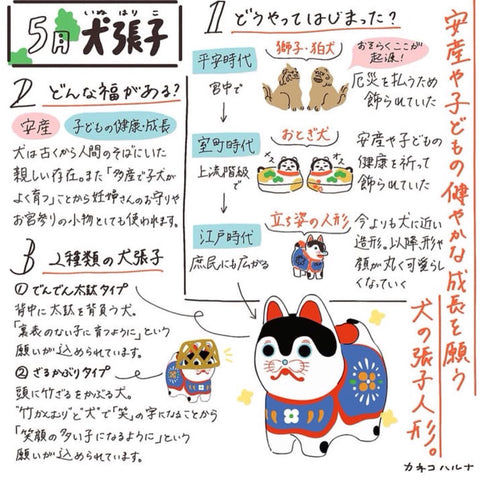 5月 犬張子
いぬ はり こ
安産や子どもの健やかな成長を願う
犬の張子人形。
1 どうやってはじまった?
平安時代
宮中で
獅子・狛犬
おそらくここが
起源!
厄災を払うため
飾られていた
室町時代
上流階級
で
おとぎ犬
安産や子どもの
健康を祈って
飾られていた
江戸時代
庶民にも広がる
立ち姿の人形
今よりも犬に近い
造形。以降、形や
顔が丸く可愛らし
くなっていく
2 どんな福がある?
安産
子どもの健康・成長
犬は古くから人間のそばにいた
親しい存在。また「多産で子犬が
よく育つ」ことから妊婦さんのお守りや
お宮参りの小物としても使われます。
3 2種類の犬張子
① でんでん太鼓タイプ
背中に太鼓を背負う犬。
「裏表のない子に育つように」という
願いが込められています。
② ざるかぶりタイプ
頭に竹ざるをかぶる犬。
"竹かんむり"と"犬"で「笑」の字になることから
「笑顔の多い子になるように」という
願いが込められています。
カネコハルナ